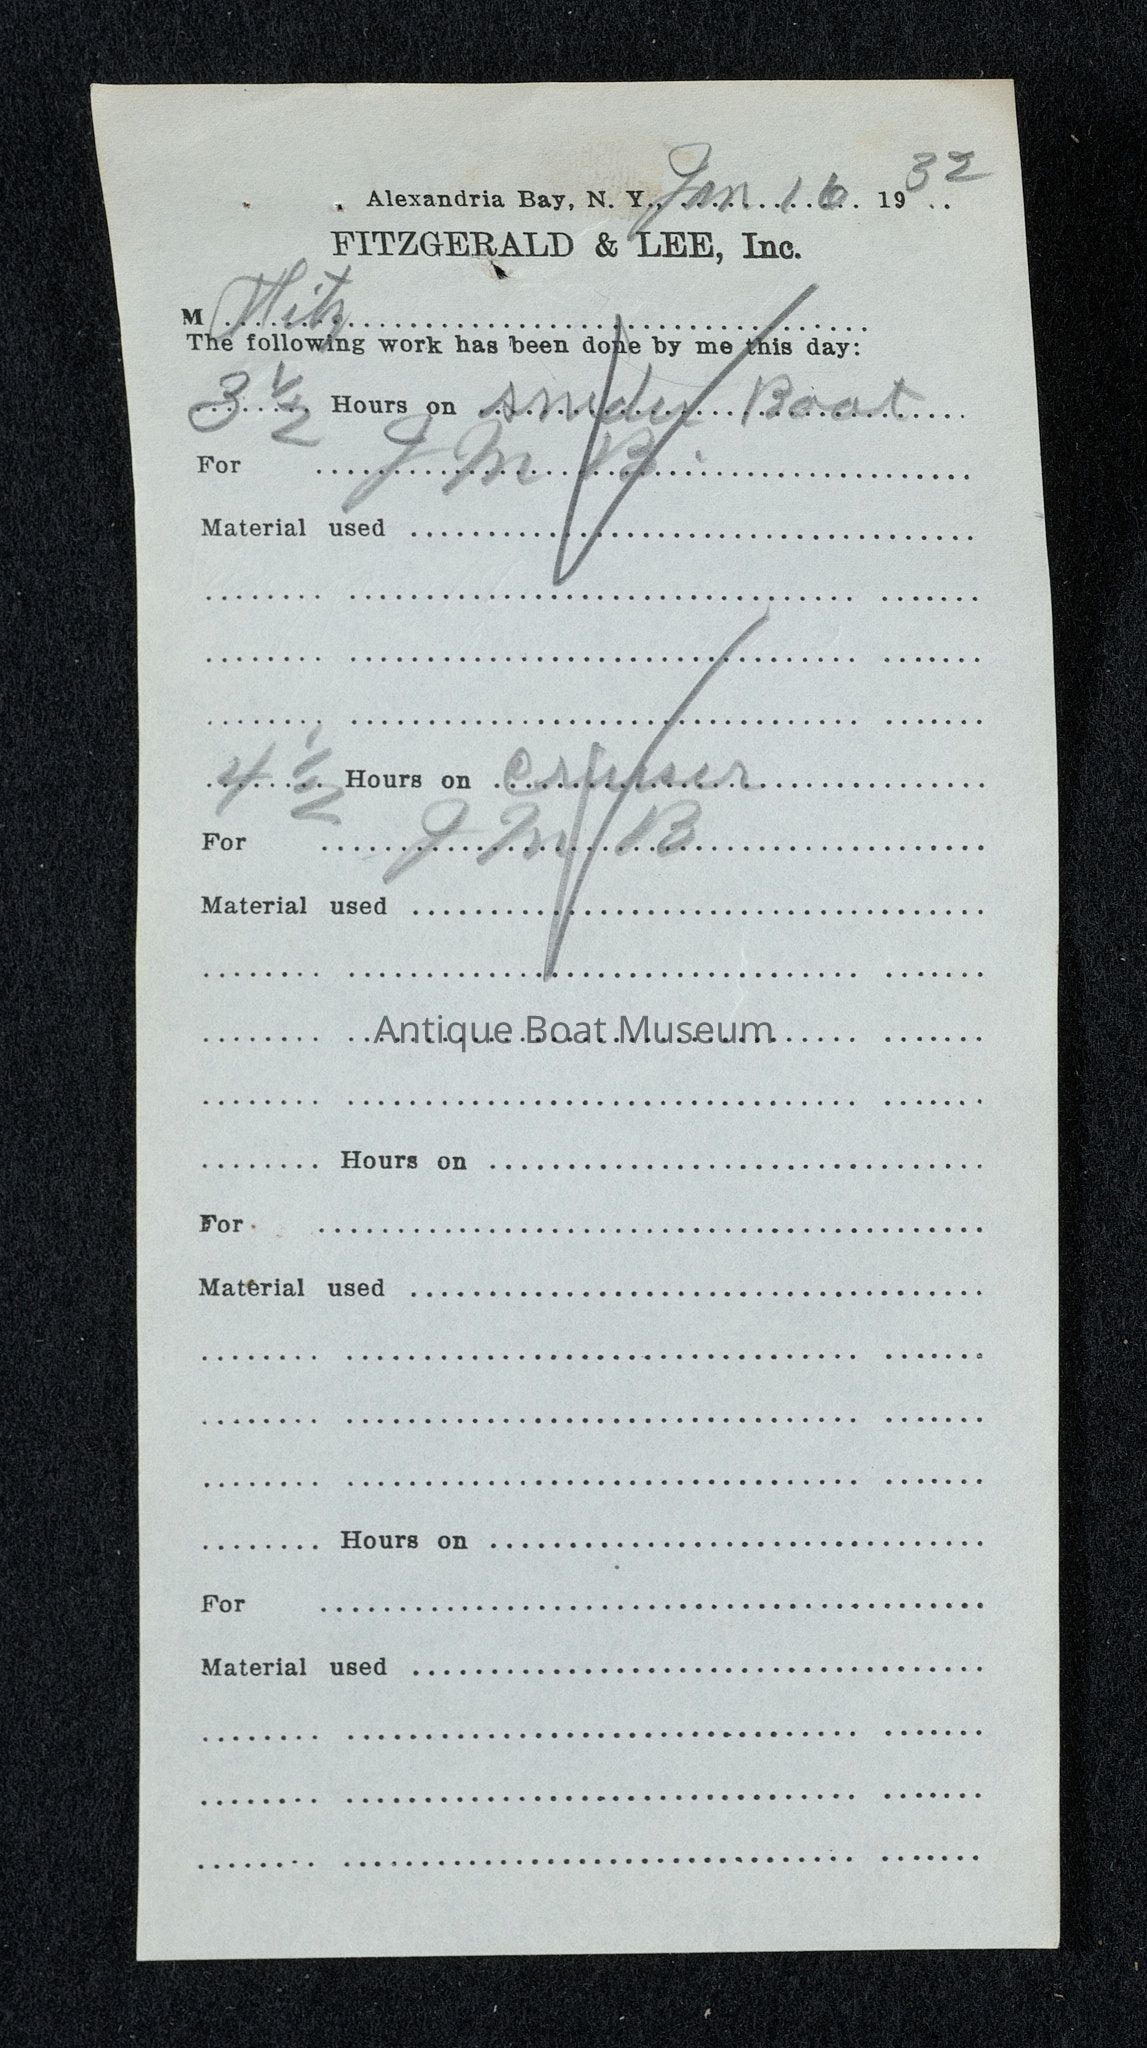 Alexandria Bay, N. Y., Jan 16 1932
FITZGERALD & LEE, Inc.
M
The following work has been done by me this day:
3 1/2 Hours on Snider Boat
For J M B.
Material used
4 1/2 Hours on Cruiser
For J M B
Material used
Antique Boat Museum
Hours on
For
Material used
Hours on
For
Material used